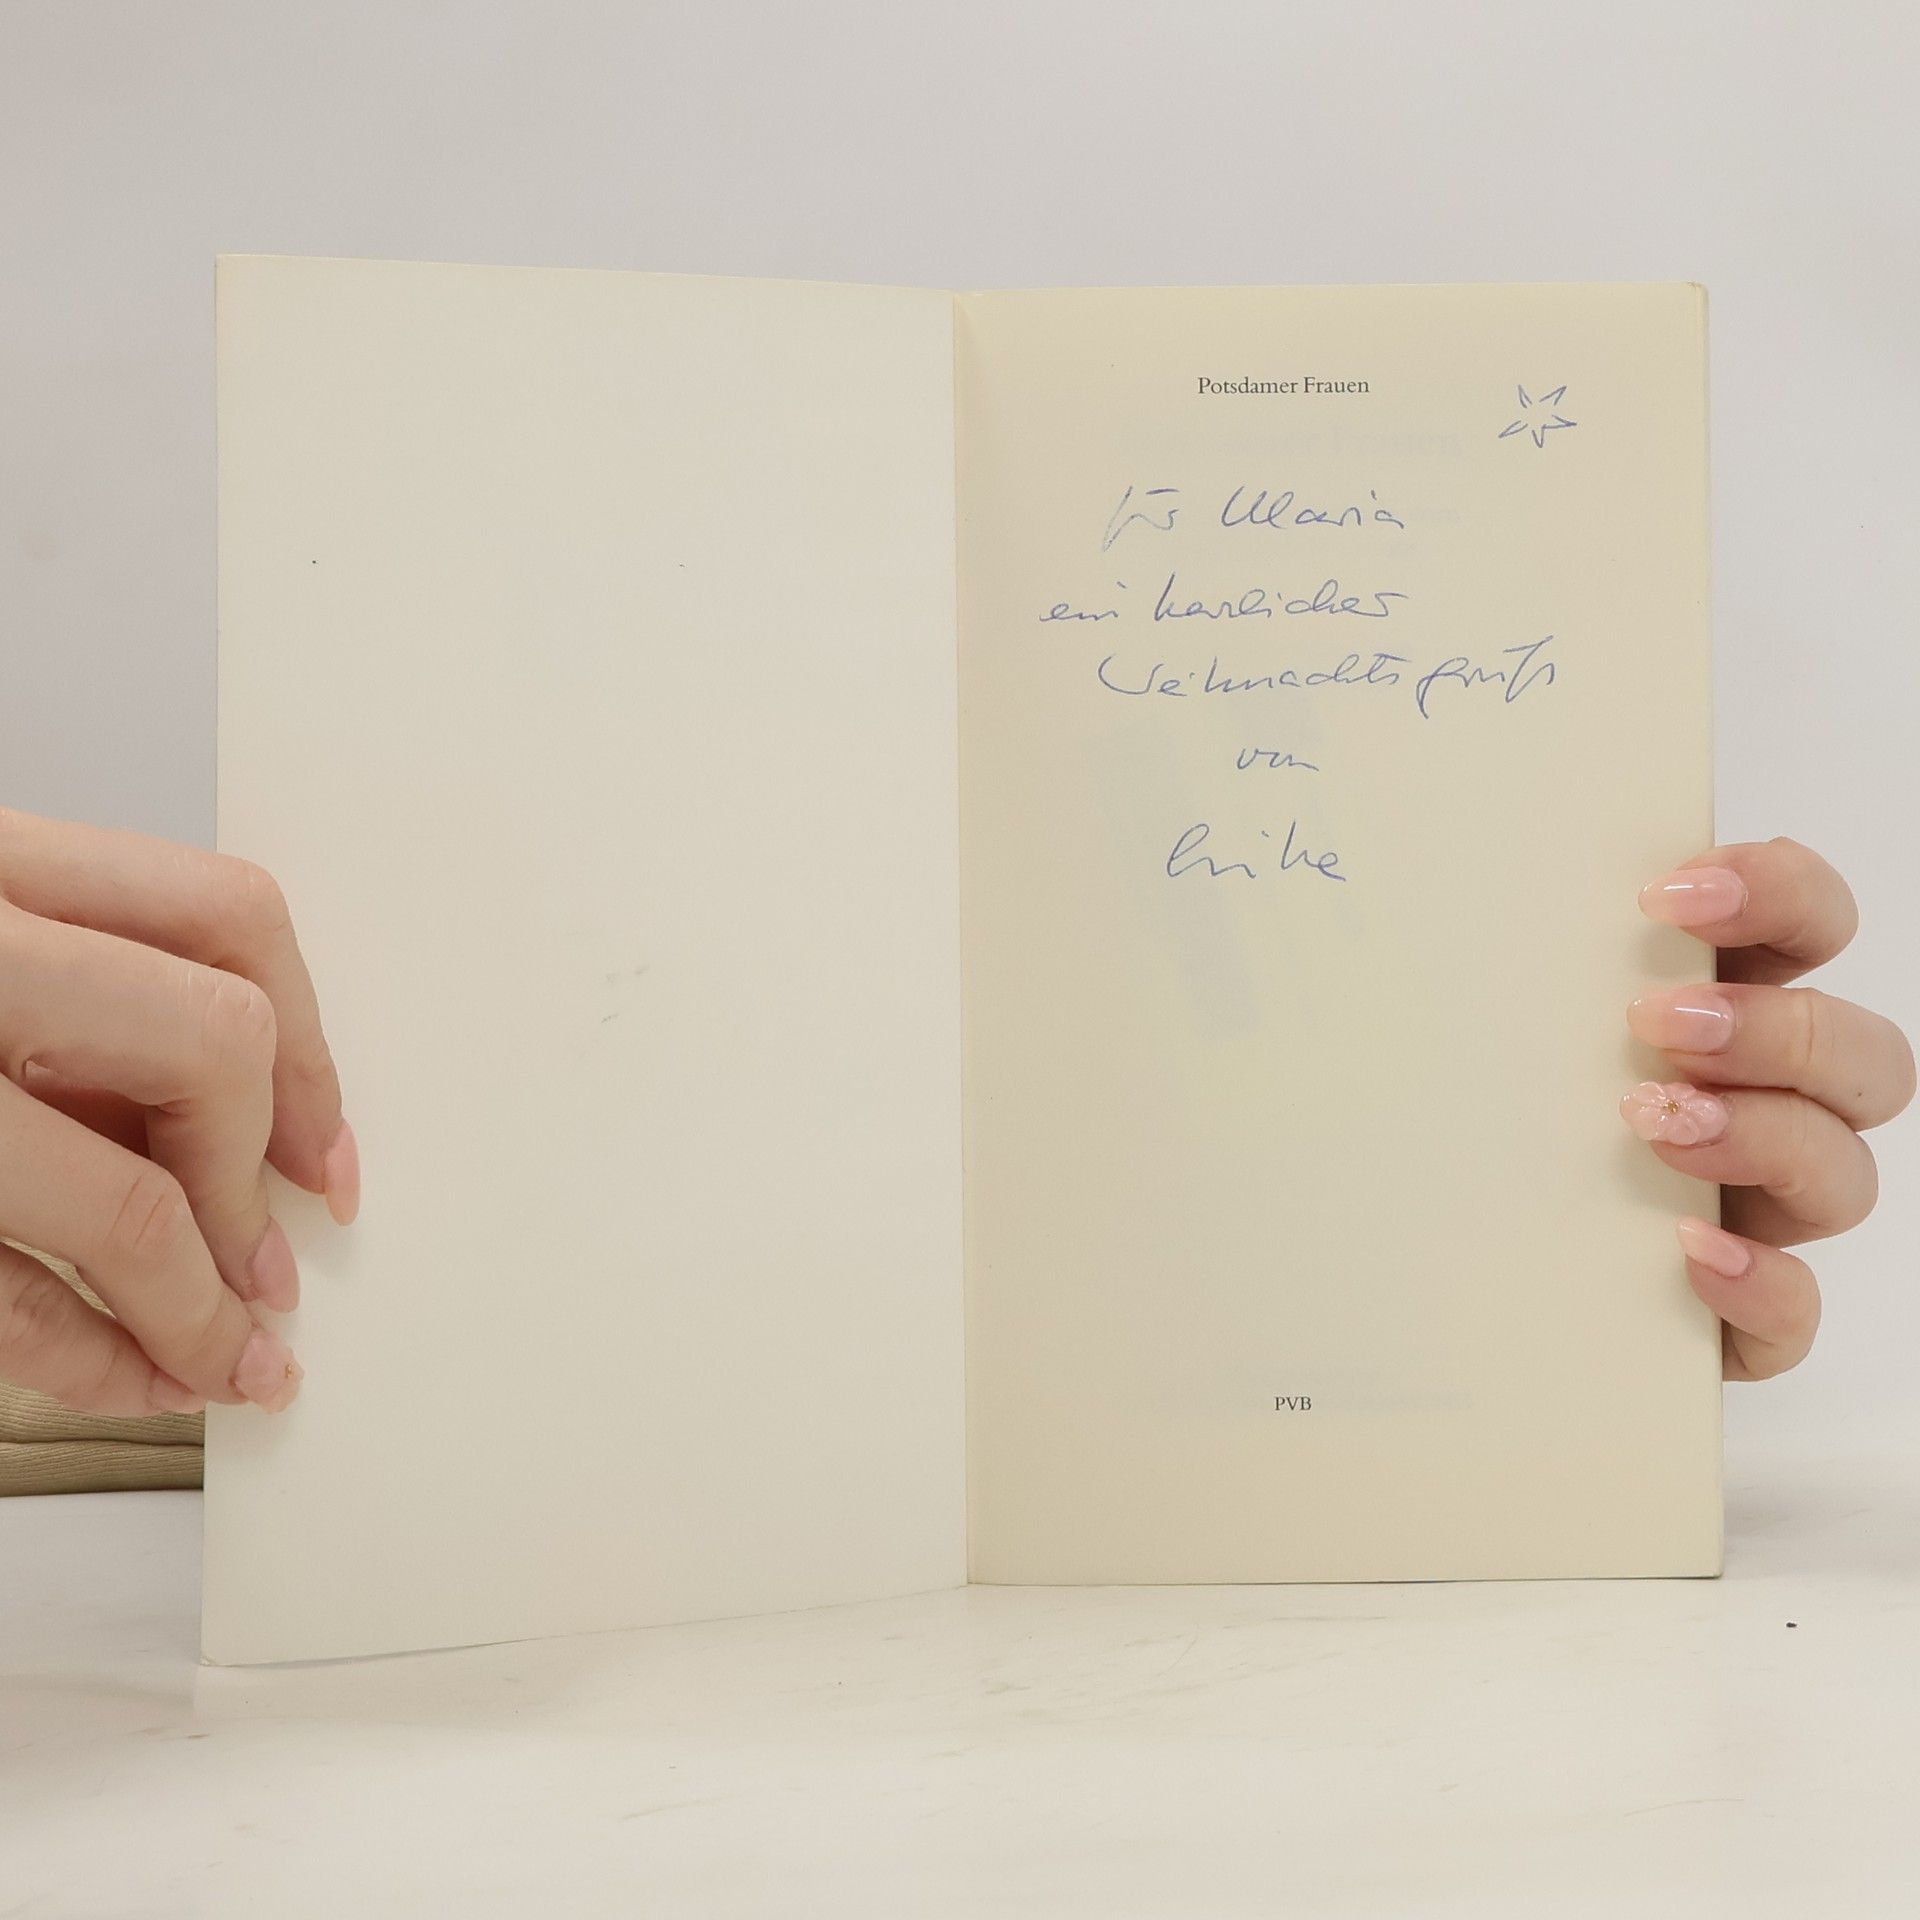 Potsdamer Frauen
für Maria
ein herzlicher
Weihnachtsgruß
von
Erike
PVB